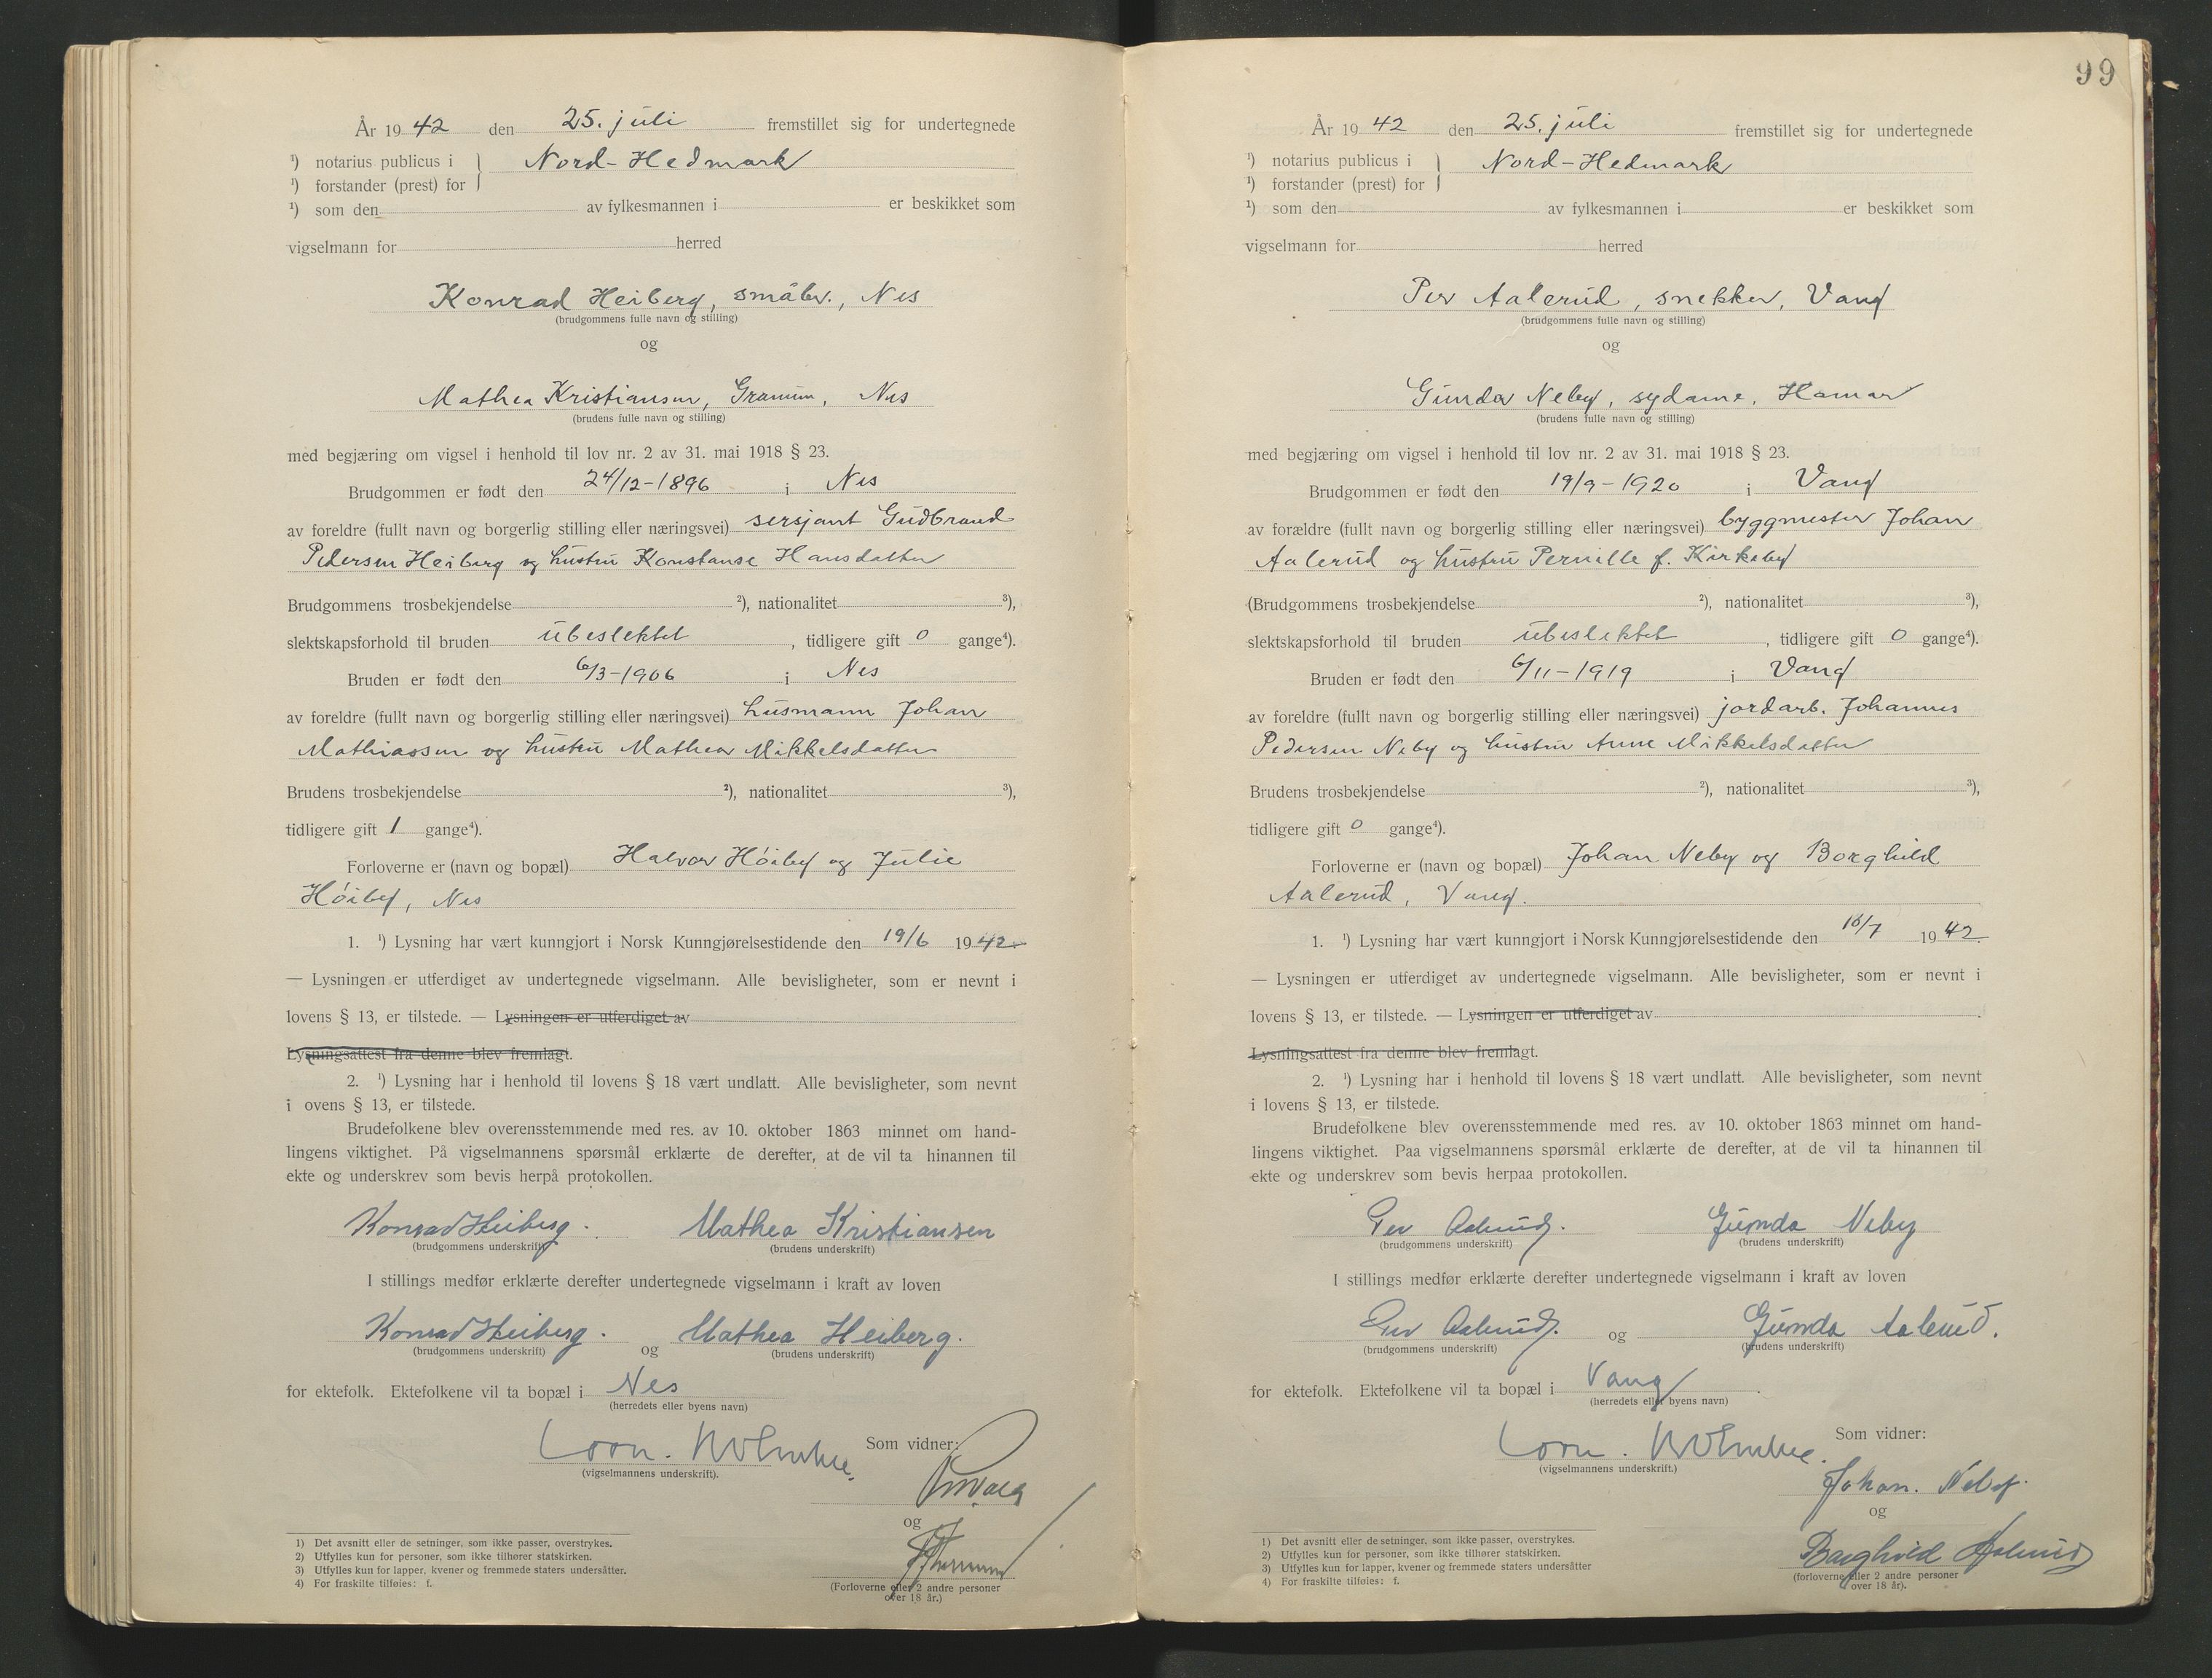 År 19 42 den 25. juli fremstillet sig for undertegnede
¹) notarius publicus i } Nord-Hedmark
¹) forstander (prest) for
¹) som den av fylkesmannen i er beskikket som
vigselmann for herred
Konrad Heiberg, småbr., Nes
(brudgommens fulle navn og stilling)
og
Mathea Kristiansen, Granum, Nes
(brudens fulle navn og stilling)
med begjæring om vigsel i henhold til lov nr. 2 av 31. mai 1918 § 23.
Brudgommen er født den 24/12-1896 i Nes
av foreldre (fullt navn og borgerlig stilling eller næringsvei) sersjant Gudbrand
Pedersen Heiberg og hustru Konstanse Hansdatter
Brudgommens trosbekjendelse ²), nationalitet ³),
slektskapsforhold til bruden ubeslektet, tidligere gift 0 gange⁴).
Bruden er født den 6/3-1906 i Nes
av foreldre (fullt navn og borgerlig stilling eller næringsvei) husmann Johan
Mathiassen og hustru Mathea Mikkelsdatter
Brudens trosbekjendelse ²), nationalitet ³),
tidligere gift 1 gange⁴).
Forloverne er (navn og bopæl) Halvor Høiby og Julie
Høiby, Nes
1. ¹) Lysning har vært kunngjort i Norsk Kunngjørelsestidende den 19/6 1942.
— Lysningen er utferdiget av undertegnede vigselmann. Alle bevisligheter, som er nevnt i
lovens § 13, er tilstede. — Lysningen er utferdiget av
Lysningsattest fra denne blev fremlagt.
2. ¹) Lysning har i henhold til lovens § 18 vært undlatt. Alle bevisligheter, som nevnt
i ovens § 13, er tilstede.
Brudefolkene blev overensstemmende med res. av 10. oktober 1863 minnet om hand-
lingens viktighet. På vigselmannens spørsmål erklærte de derefter, at de vil ta hinannen til
ekte og underskrev som bevis herpå protokollen.
Konrad Heiberg. Mathea Kristiansen
(brudgommens underskrift) (brudens underskrift)
I stillings medfør erklærte derefter undertegnede vigselmann i kraft av loven
Konrad Heiberg. og Mathea Heiberg.
(brudgommens underskrift) (brudens underskrift)
for ektefolk. Ektefolkene vil ta bopæl i Nes
(herredets eller byens navn)
Som vidner:
(vigselmannens underskrift).
og
1) Det avsnitt eller de setninger, som ikke passer, overstrykes.
2) Utfylles kun for personer, som ikke tilhører statskirken.
3) Utfylles kun for lapper, kvener og fremmede staters undersåtter.
4) For fraskilte tilføies: f.
(Forloverne eller 2 andre personer
over 18 år.)
99
År 19 42 den 25. juli fremstillet sig for undertegnede
¹) notarius publicus i } Nord-Hedmark
¹) forstander (prest) for
¹) som den av fylkesmannen i er beskikket som
vigselmann for herred
Per Aalerud, snekker, Vang
(brudgommens fulle navn og stilling)
og
Gunda Neby, sydame, Hamar
(brudens fulle navn og stilling)
med begjæring om vigsel i henhold til lov nr. 2 av 31. mai 1918 § 23.
Brudgommen er født den 19/9-1920 i Vang
av forældre (fullt navn og borgerlig stilling eller næringsvei) byggmester Johan
Aalerud og hustru Pernille f. Kirkeby
(Brudgommens trosbekjendelse ²), nationalitet ³),
slektskapsforhold til bruden ubeslektet, tidligere gift 0 gange⁴).
Bruden er født den 6/11-1919 i Vang
av foreldre (fullt navn og borgerlig stilling eller næringsvei) jordarb. Johannes
Pedersen Neby og hustru Anne Mikkelsdatter
Brudens trosbekjendelse ²), nationalitet ³),
tidligere gift 0 gange⁴).
Forloverne er (navn og bopæl) Johan Neby og Borghild
Aalerud, Vang.
1. ¹) Lysning har vært kunngjort i Norsk Kunngjørelsestidende den 16/7 1942.
— Lysningen er utferdiget av undertegnede vigselmann. Alle bevisligheter, som er nevnt i
lovens § 13, er tilstede. — Lysningen er utferdiget av .
Lysningsattest fra denne blev fremlagt.
2. ¹) Lysning har i henhold til lovens § 18 vært undlatt. Alle bevisligheter, som nevnt
i lovens § 13, er tilstede.
Brudefolkene blev overensstemmende med res. av 10. oktober 1863 minnet om hand-
lingens viktighet. Paa vigselmannens spørsmål erklærte de derefter, at de vil ta hinannen til
ekte og underskrev som bevis herpaa protokollen.
Per Aalerud. Gunda Neby
(brudgommens underskrift) (brudens underskrift)
I stillings medfør erklærte derefter undertegnede vigselmann i kraft av loven
Per Aalerud. og Gunda Aalerud.
(brudgommens underskrift) (brudens underskrift)
for ektefolk. Ektefolkene vil ta bopæl i Vang.
(herredets eller byens navn)
Som vidner:
(vigselmannens underskrift.)
Johan. Neby.
og
Borghild Aalerud
1) Det avsnitt eller de setninger, som ikke passer, overstrykes.
2) Utfylles kun for personer, som ikke tilhører statskirken.
3) Utfylles kun for lapper, kvener og fremmede staters undersåtter
4) For fraskilte tilføies: f.
(forloverne eller 2 andre personer
over 18 år).